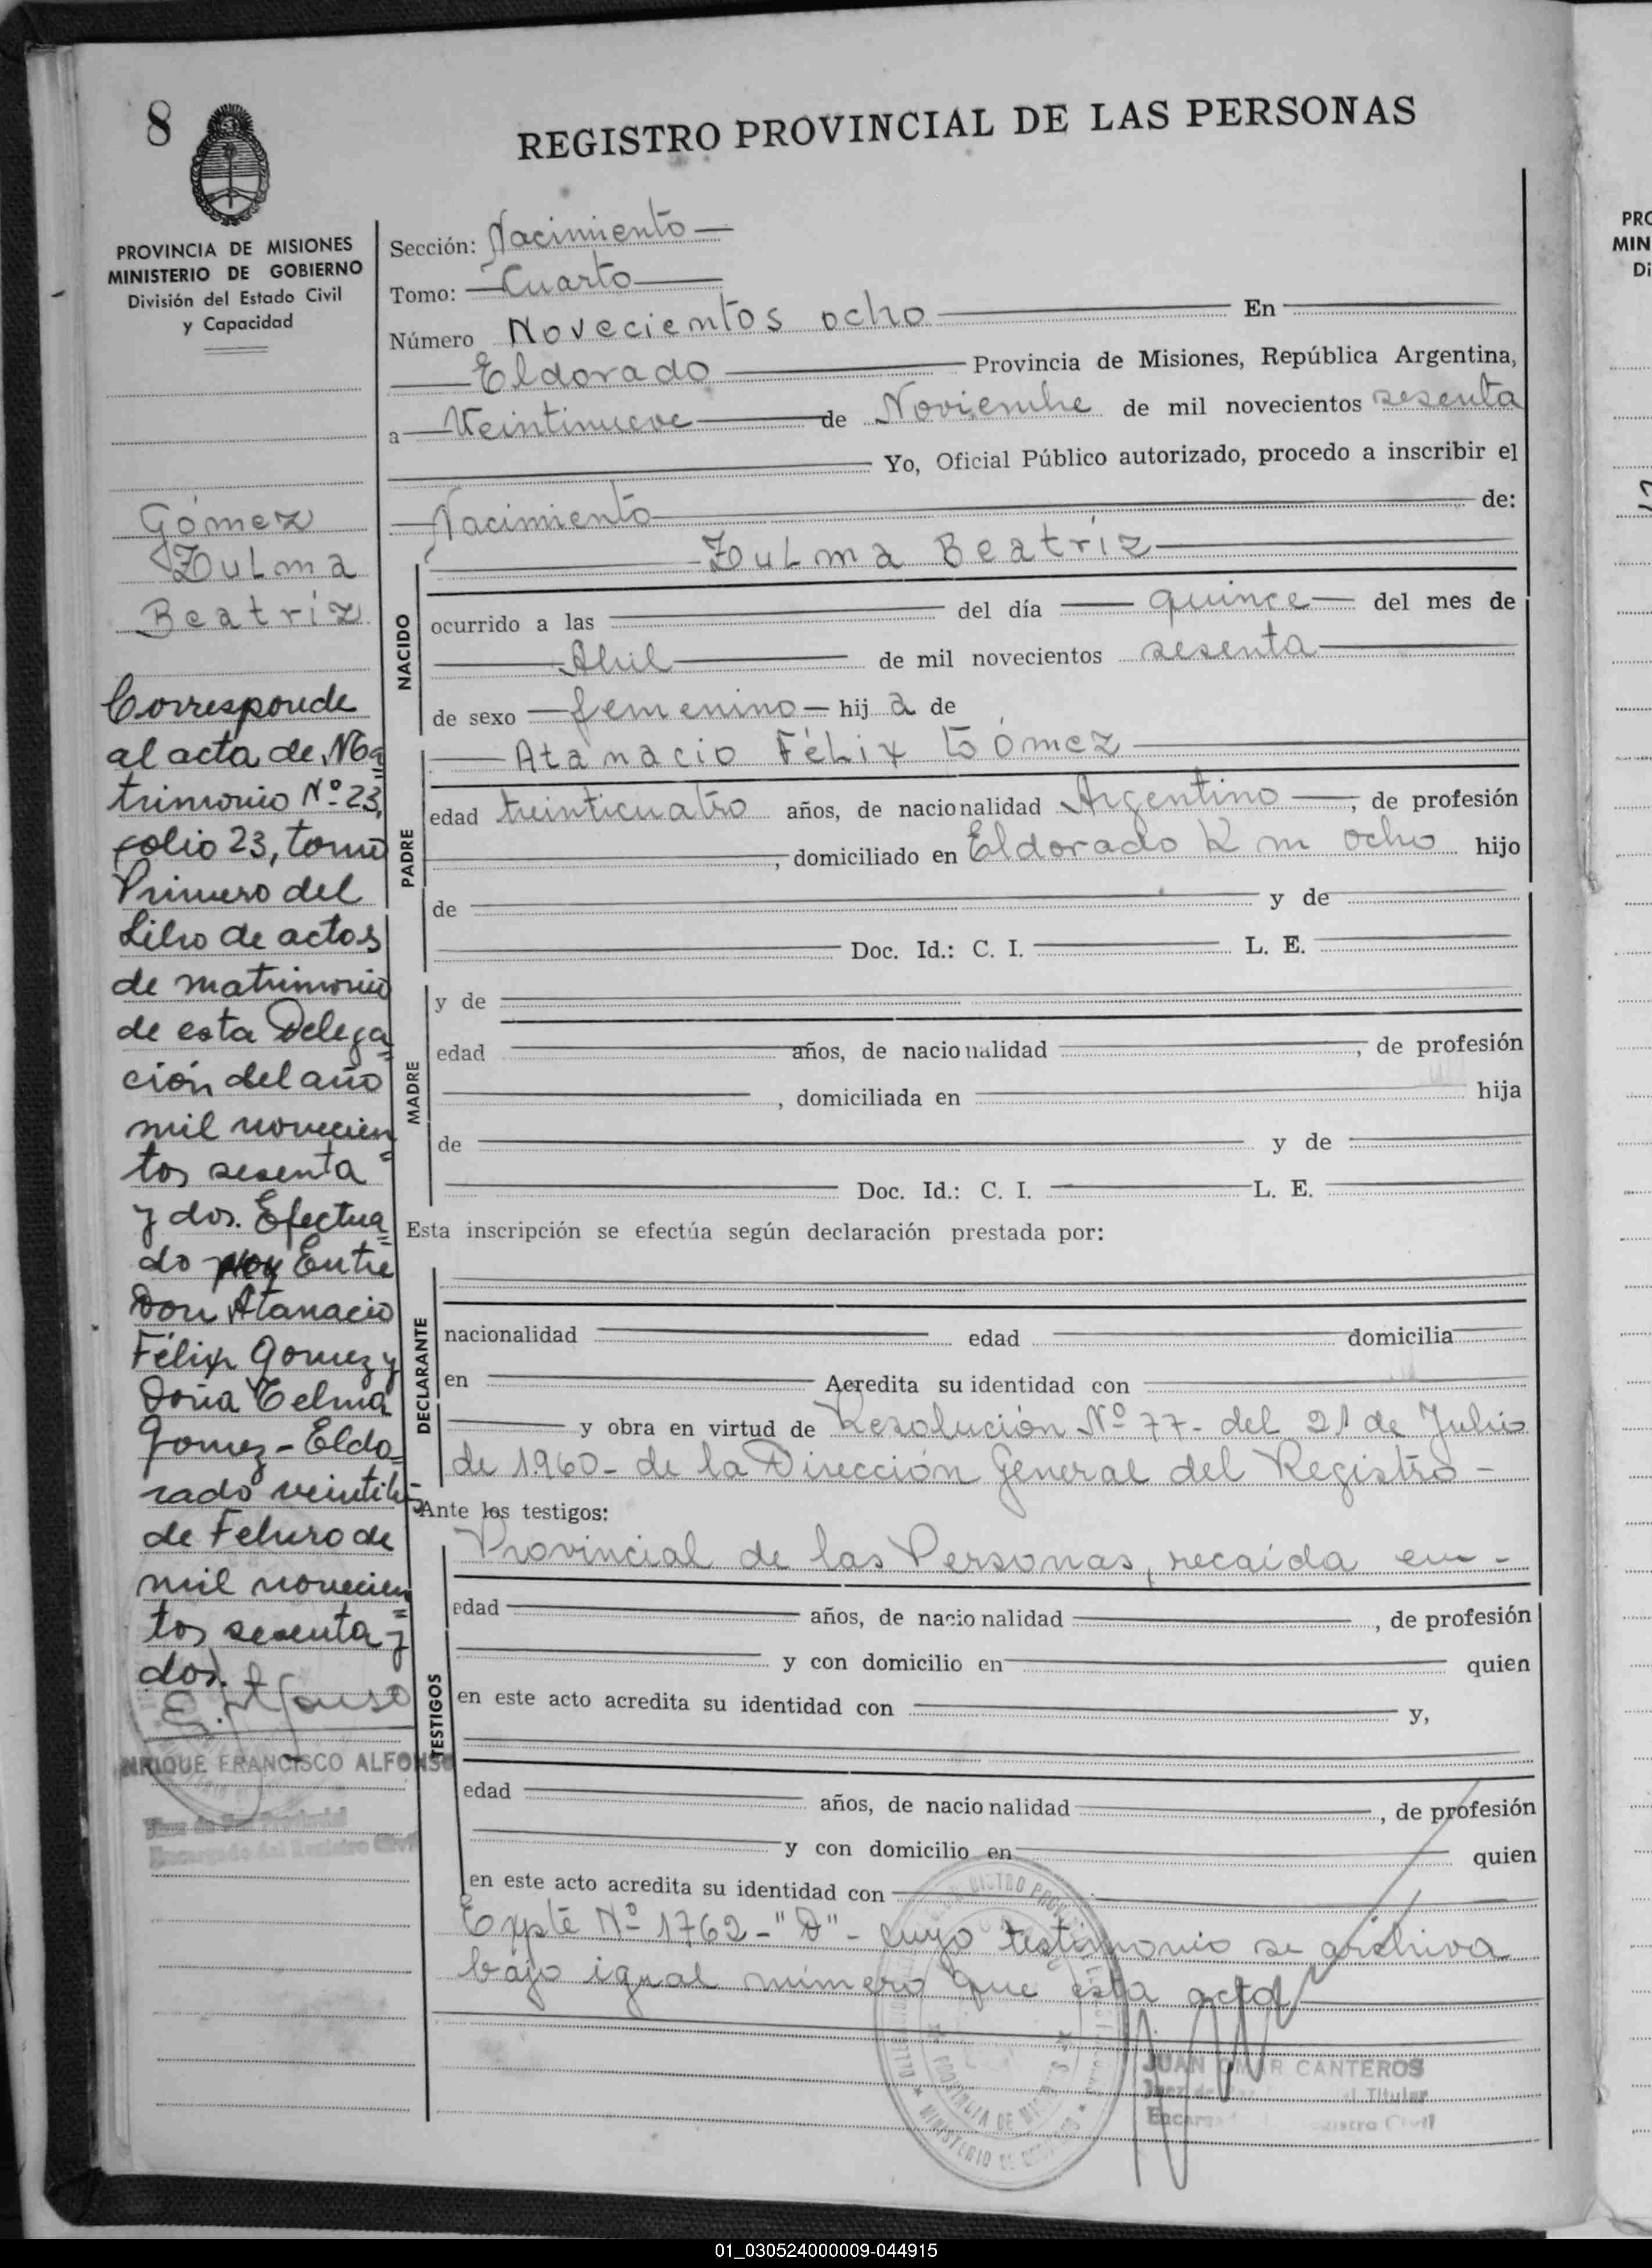 8
REGISTRO PROVINCIAL DE LAS PERSONAS
PROVINCIA DE MISIONES
MINISTERIO DE GOBIERNO
División del Estado Civil
y Capacidad
Gómez
Zulma
Beatríz
Corresponde
al acta de Ma
trimonio Nº 23,
folio 23, tomo
Primero del
Libro de actos
de matrimonio
de esta Delega
ción del año
mil novecien
tos sesenta
y dos. Efectua
do hoy Entre
Don Atanacio
Félix Gomez y
Doña Telma
Gomez - Eldo
rado veintitrés
de Febrero de
mil novecien
tos sesenta y
dos.
E. Alfonso
NRIQUE FRANCISCO ALFONSO
Juez de Paz Provincial
Encargado del Registro Civil
Sección: Nacimiento
Tomo: Cuarto
Número Novecientos ocho En
Eldorado Provincia de Misiones, República Argentina,
a Veintinueve de Noviembre de mil novecientos sesenta
Yo, Oficial Público autorizado, procedo a inscribir el
Nacimiento de:
Zulma Beatríz
NACIDO
ocurrido a las del día quince del mes de
Abril de mil novecientos sesenta
de sexo femenino hij a de
Atanacio Félix Gómez
PADRE
edad treinticuatro años, de nacionalidad Argentino, de profesión
, domiciliado en Eldorado Km ocho hijo
de y de
Doc. Id.: C. I. L. E.
MADRE
y de
edad años, de nacionalidad , de profesión
, domiciliada en hija
de y de
Doc. Id.: C. I. L. E.
Esta inscripción se efectúa según declaración prestada por:
DECLARANTE
nacionalidad edad domicilia
en Acredita su identidad con
y obra en virtud de Resolución Nº 77- del 21 de Julio
de 1960- de la Dirección General del Registro -
Ante los testigos:
Provincial de las Personas, recaída en -
TESTIGOS
edad años, de nacionalidad , de profesión
y con domicilio en quien
en este acto acredita su identidad con y,
edad años, de nacionalidad , de profesión
y con domicilio en quien
en este acto acredita su identidad con
Expte Nº 1762-"D"- cuyo testimonio se archiva
bajo igual número que esta acta
JUAN OMAR CANTEROS
Juez de Paz Titular
Registro Civil
PRO
MIN
Di
01_030524000009-044915